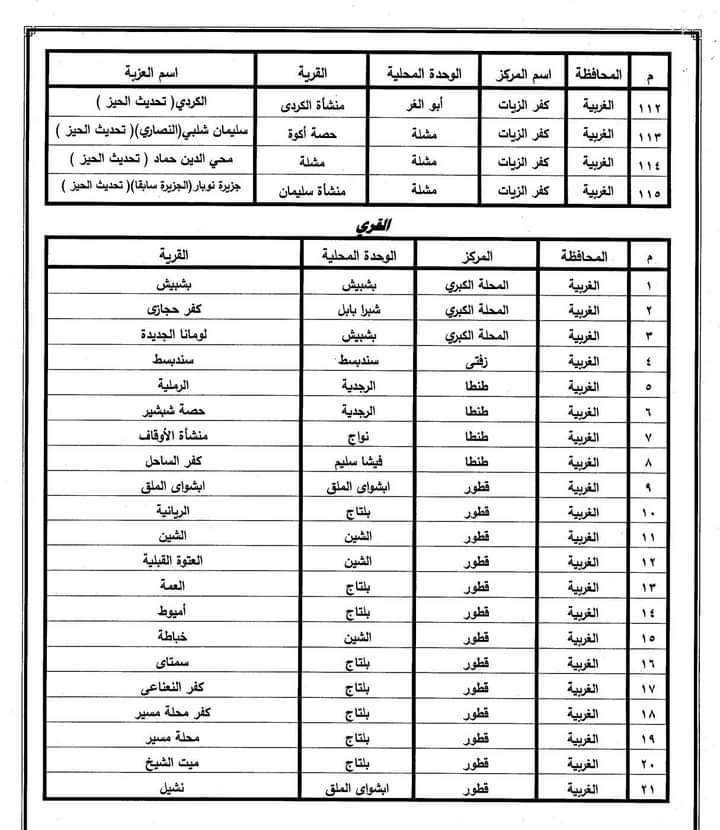 م المحافظة اسم المركز الوحدة المحلية القرية اسم العزبة
١١٢ الغربية كفر الزيات أبو الغر منشأة الكردى الكردي( تحديث الحيز )
١١٣ الغربية كفر الزيات مشلة حصة أكوة سليمان شلبي(النصاري)( تحديث الحيز )
١١٤ الغربية كفر الزيات مشلة مشلة محي الدين حماد ( تحديث الحيز )
١١٥ الغربية كفر الزيات مشلة منشأة سليمان جزيرة نوبار(الجزيرة سابقا)( تحديث الحيز )
القري
م المحافظة المركز الوحدة المحلية القرية
١ الغربية المحلة الكبري بشبيش بشبيش
٢ الغربية المحلة الكبري شبرا بابل كفر حجازى
٣ الغربية المحلة الكبري بشبيش لومانا الجديدة
٤ الغربية زفتى سندبسط سندبسط
٥ الغربية طنطا الرجدية الرملية
٦ الغربية طنطا الرجدية حصة شبشير
٧ الغربية طنطا نواج منشأة الأوقاف
٨ الغربية طنطا فيشا سليم كفر الساحل
٩ الغربية قطور ابشواى الملق ابشواى الملق
١٠ الغربية قطور بلتاج الريانية
١١ الغربية قطور الشين الشين
١٢ الغربية قطور الشين العتوة القبلية
١٣ الغربية قطور بلتاج العمة
١٤ الغربية قطور بلتاج أميوط
١٥ الغربية قطور الشين خباطة
١٦ الغربية قطور بلتاج سمتاى
١٧ الغربية قطور بلتاج كفر النعناعى
١٨ الغربية قطور بلتاج كفر محلة مسير
١٩ الغربية قطور بلتاج محلة مسير
٢٠ الغربية قطور بلتاج ميت الشيخ
٢١ الغربية قطور ابشواى الملق نشيل